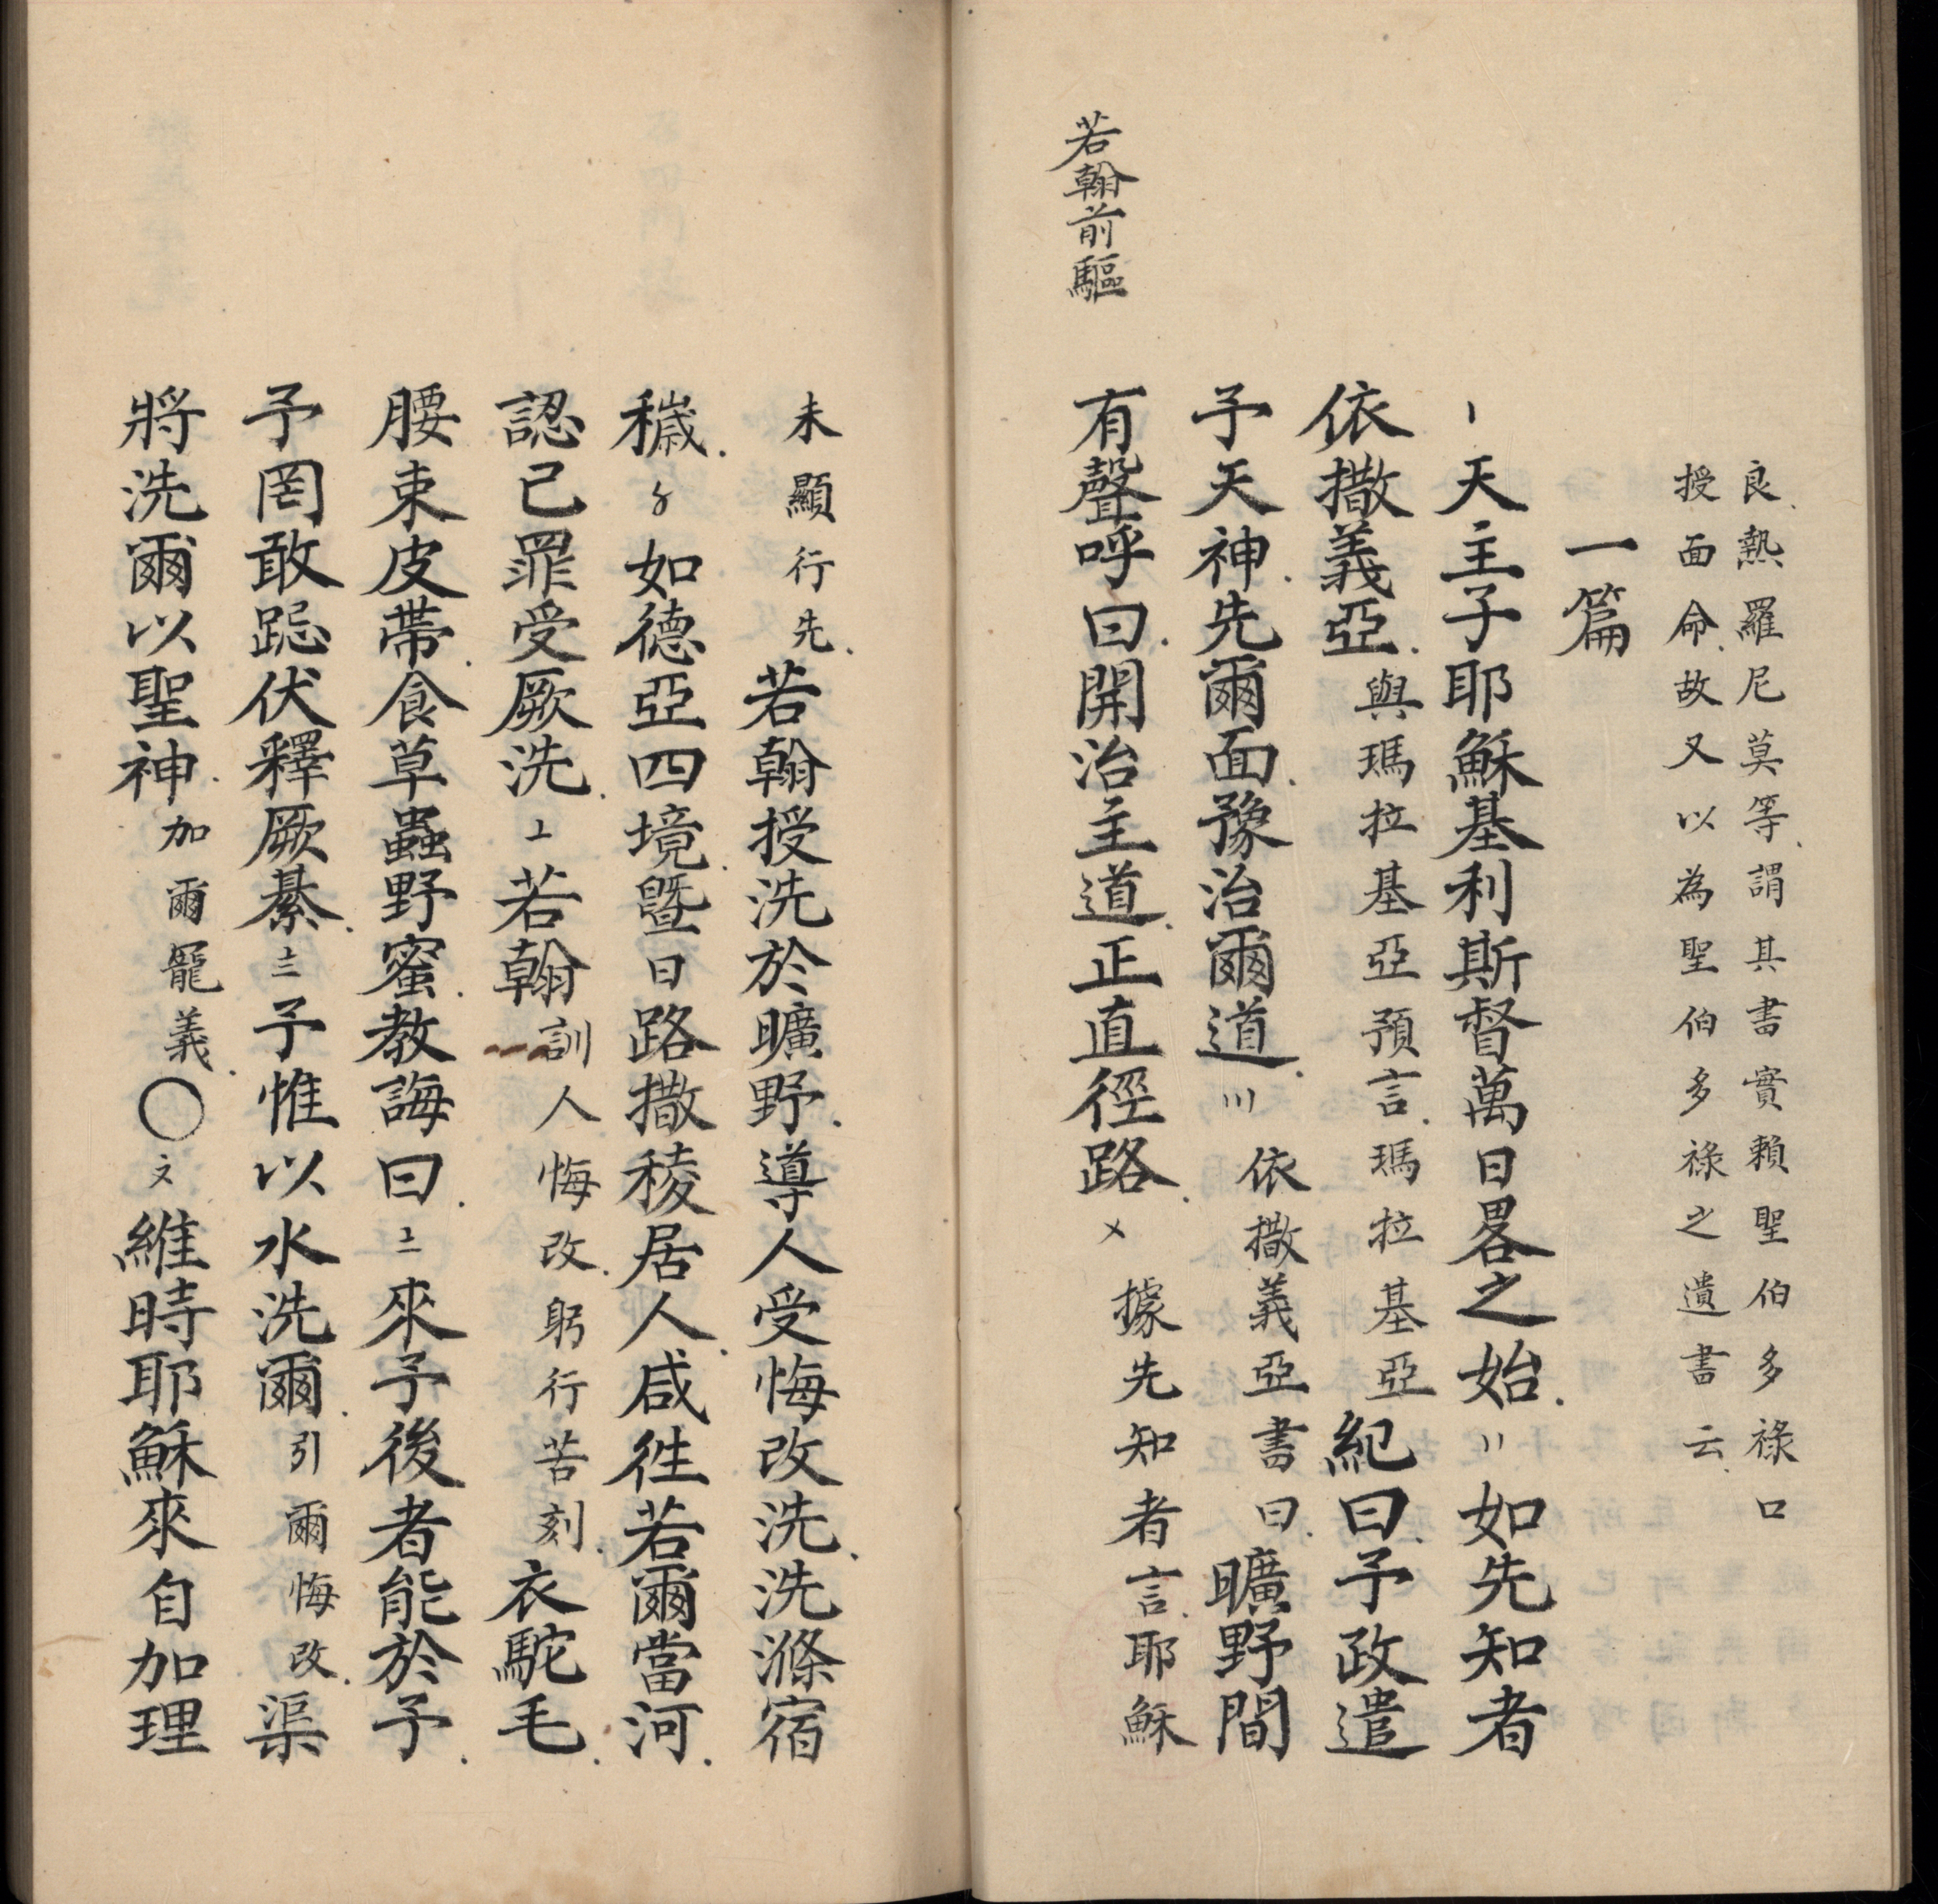 良熱羅尼莫等謂其書實賴聖伯多祿口
授面命故又以為聖伯多祿之遺書云
一篇
〡天主子耶穌基利斯督萬日畧之始〢如先知者
依撒義亞與瑪拉基亞預言瑪拉基亞紀曰予政遣
予天神先爾面豫治爾道〣依撒義亞書曰曠野間
若翰前驅
有聲呼曰開治主道正直徑路〤據先知者言耶穌
未顯行先若翰授洗於曠野導人受悔改洗洗滌宿
穢〥如德亞四境暨日路撒稜居人咸徃若爾當河
認己罪受厥洗〦若翰訓人悔改躬行苦刻衣駝毛
腰束皮帶食草蟲野蜜教誨曰〧來予後者能於予
予罔敢跽伏釋厥綦〨予惟以水洗爾引爾悔改渠
將洗爾以聖神加爾寵義〇〩維時耶穌來自加理